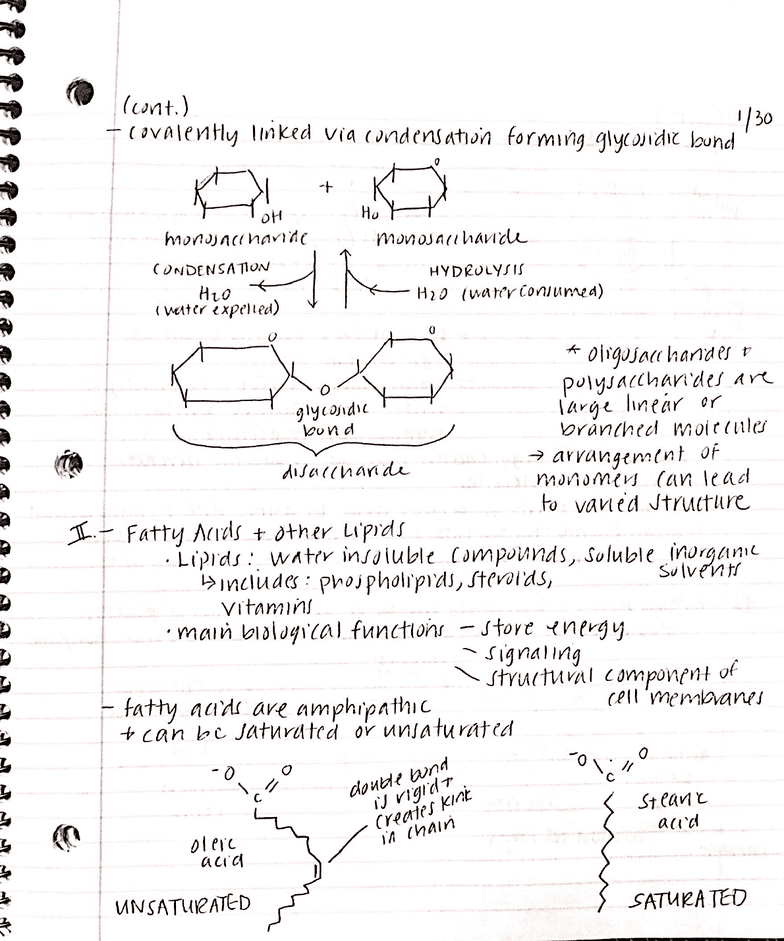 (cont.)
1/30
- covalently linked via condensation forming glycosidic bond
+
O
OH
HO
monosaccharide monosaccharide
CONDENSATION
H2O
(water expelled)
HYDROLYSIS
H2O (water consumed)
O O
O
glycosidic
bond
disaccharide
* oligosaccharides +
polysaccharides are
large linear or
branched molecules
→ arrangement of
monomers can lead
to varied structure
II. - Fatty Acids + other Lipids
· Lipids: water insoluble compounds, soluble inorganic
solvents
↳ includes: phospholipids, steroids,
vitamins
· main biological functions - store energy
- signaling
- structural component of
cell membranes
- fatty acids are amphipathic
+ can be saturated or unsaturated
-O O
C
oleic
acid
UNSATURATED
double bond
is rigid +
creates kink
in chain
-O O
C
stearic
acid
SATURATED